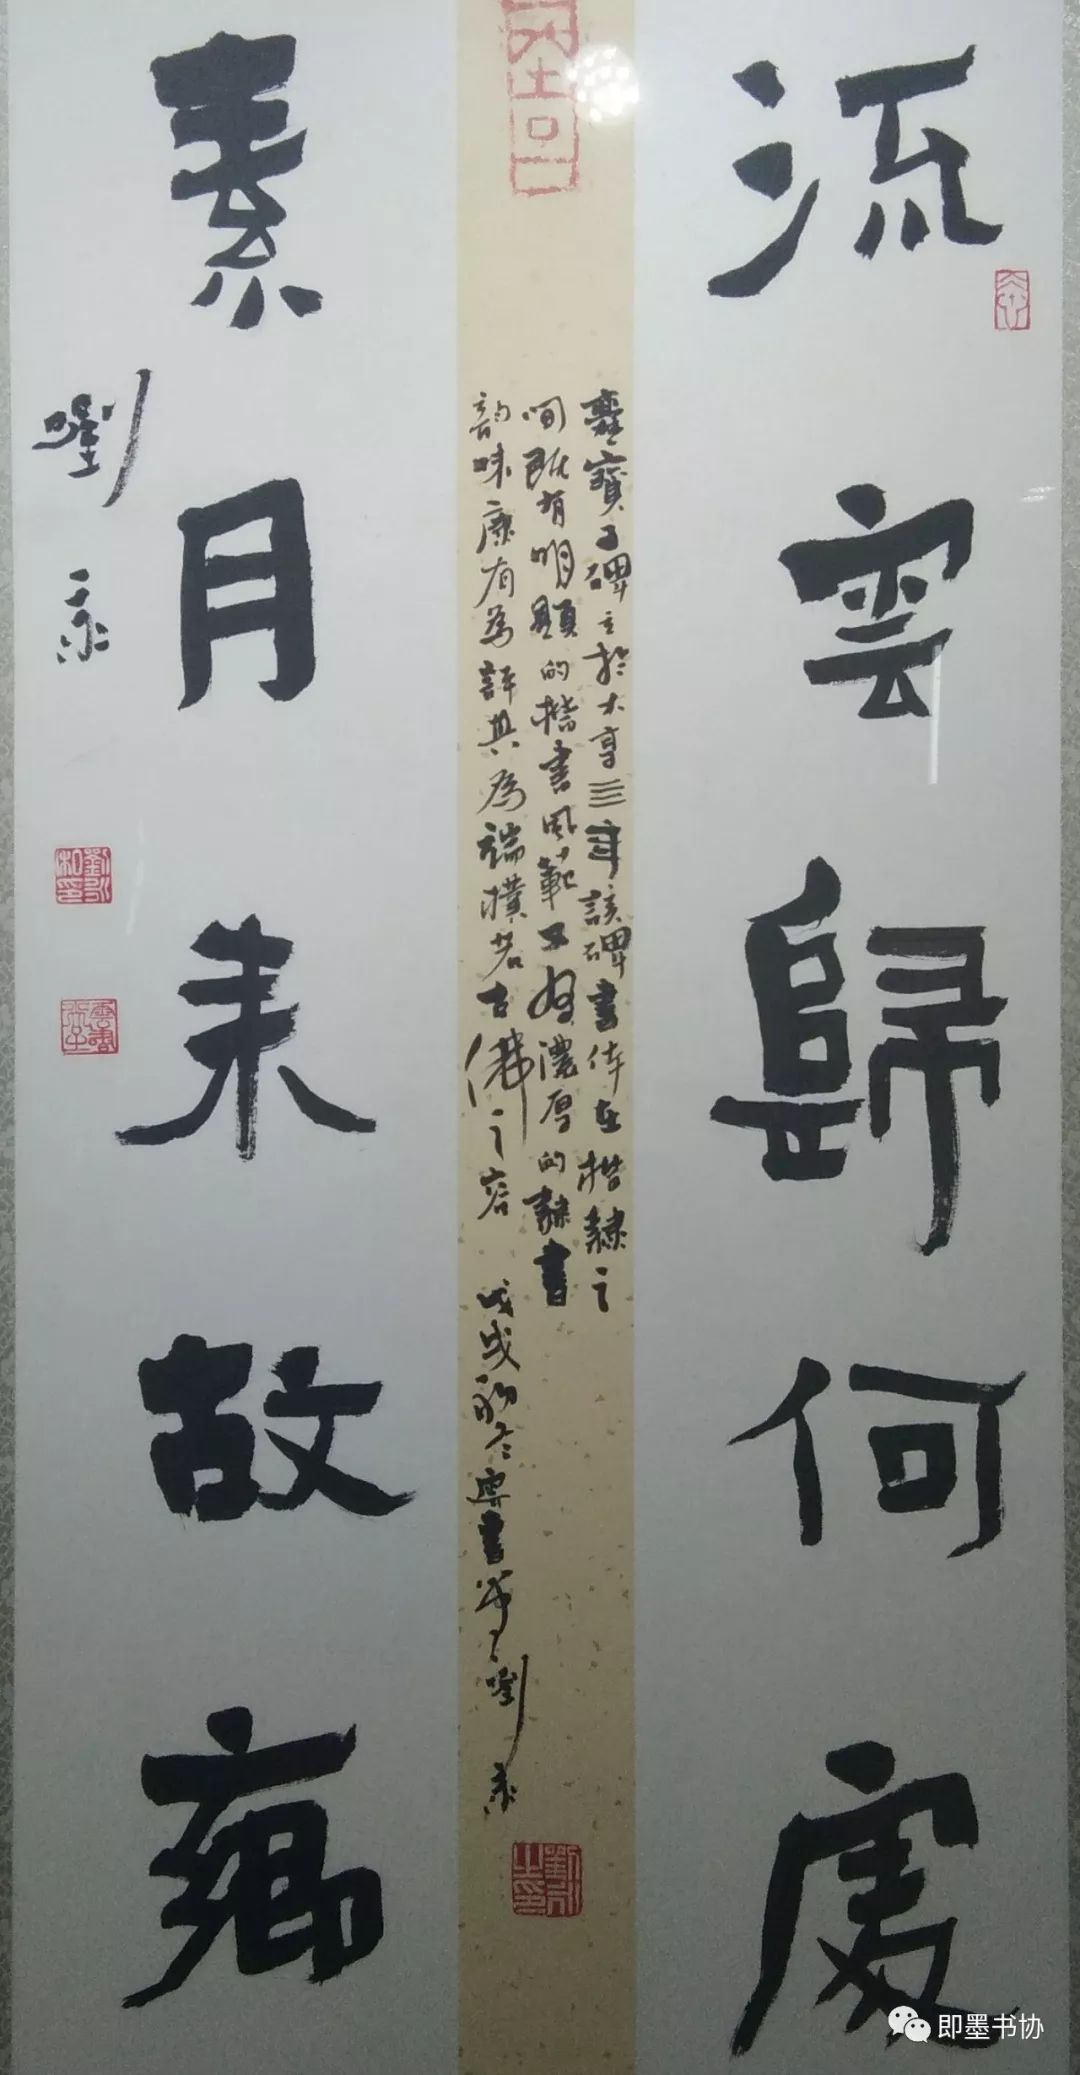 流雲歸何處
爨寶子碑立於大亨三年該碑書体在楷隸之
間既有明顯的楷書風範又有濃厚的隸書
韵味康有為評其為端樸若古佛之容 戊戌初冬 書 劉
素月來故
劉
即墨书协